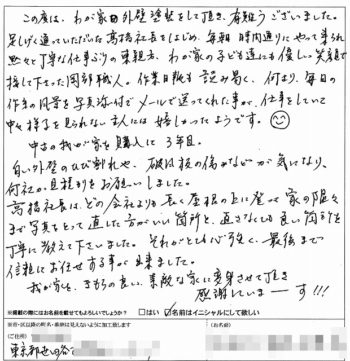 この度は、わが家の外壁塗装をして頂き、有難うございました。
足しげく通っていただいた高橋社長をはじめ、毎朝時間通りにやって来られ
黙々と丁寧な仕事ぶりの東親方、わが家の子ども達にも優しい笑顔で
接して下さった岡部職人。作業日報も読み易く、何より、毎日の
作業の風景を写真添付でメールで送ってくれた事が、仕事をしていて
中々様子を見られない主人には嬉しかったようです。
中古の我が家を購入に3年目。
白い外壁のひび割れや、破風板の傷みなどが気になり、
何社か見積りをお願いしました。
高橋社長は、どの会社よりも長く屋根の上に登って家の隅々
まで写真をとって直した方がいい箇所と、直さなくても良い箇所を
丁寧に教えて下さいました。それがとても心強く、最後まで
信頼してお任せする事が出来ました。
我が家を、きもちの良い、素敵な家に変身させて頂き
感謝していまーす!!!
※掲載の際にはお名前を載せてもよろしいでしょうか?
□はい ☑名前はイニシャルにして欲しい
※市・区以降の町名・番地は見えないように加工致します
(ご住所)
(お名前)
東京都世田谷